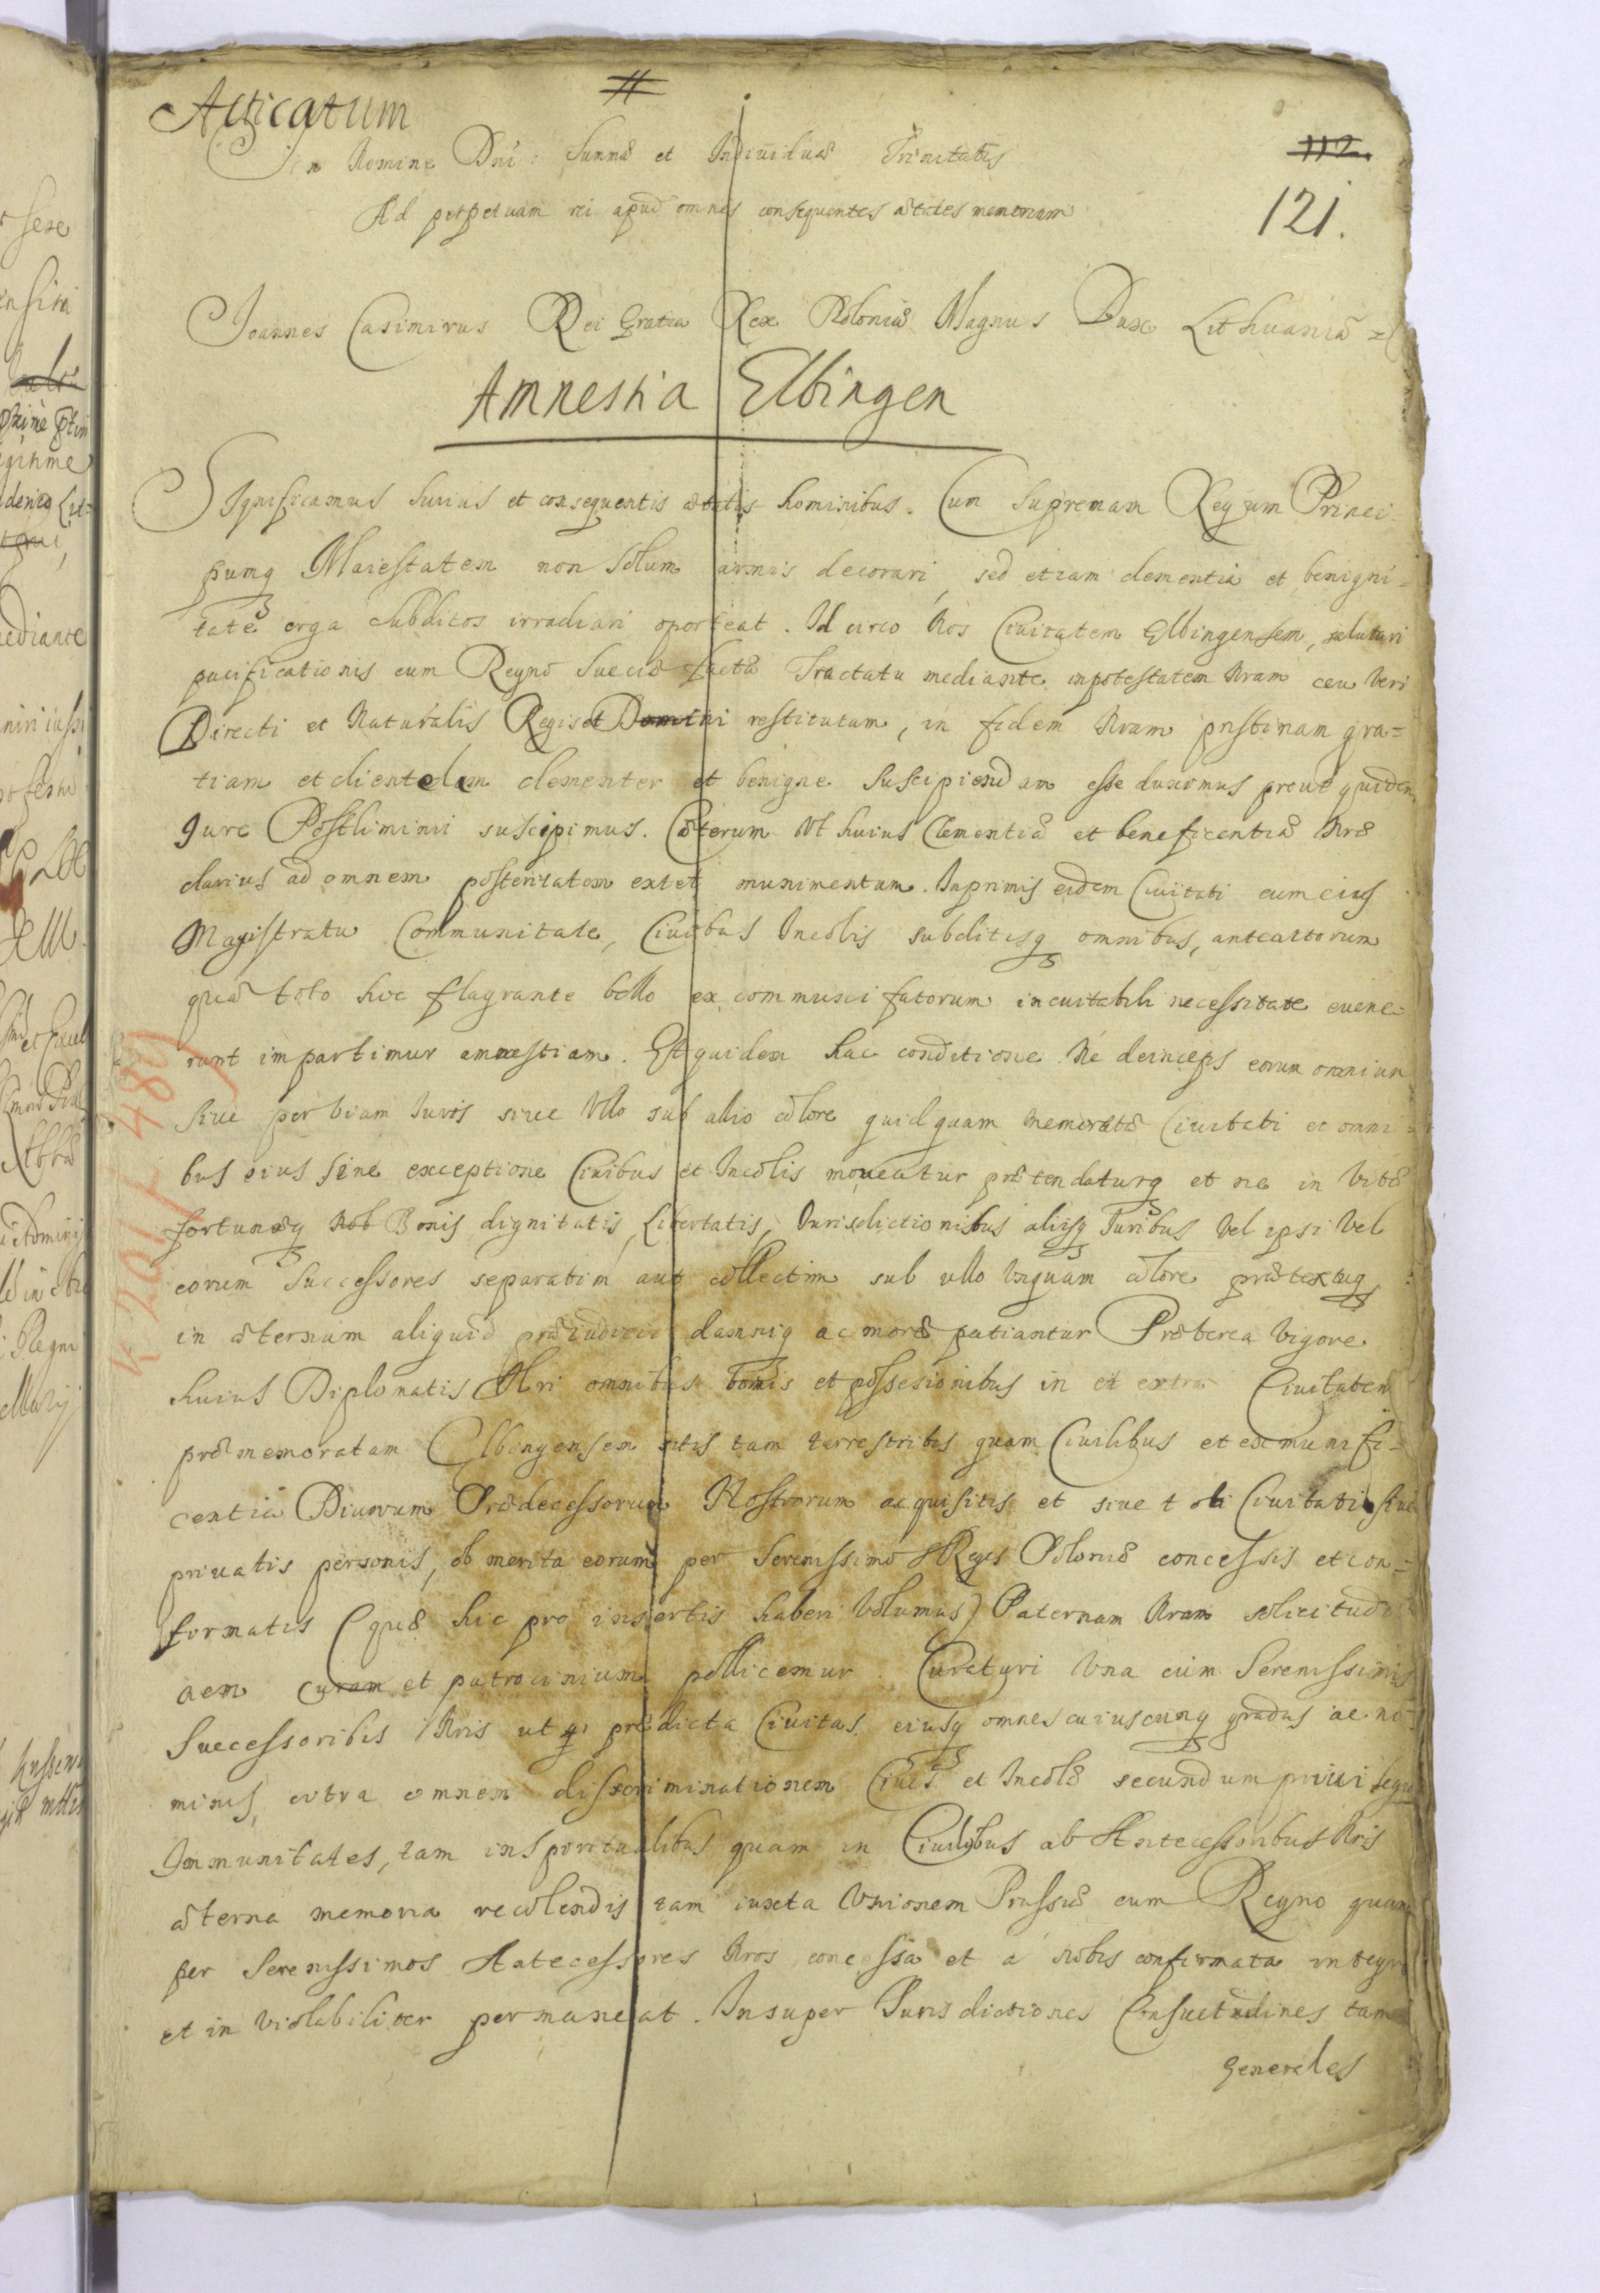 Acticatum
#
In Nomine Dni: Summæ et Indiuiduæ Trinitatis
112.
Ad perpetuam rei apud omnes consequentes ætates memoriam
121.
Joannes Casimirus Dei Gratia Rex Poloniæ Magnus Dux Lithuaniæ
Amnestia Elbingen
Significamus huius et consequentis ætatis hominibus. Cum Supremam Regum Princi-
pumq Maiestatem non solum armis decorari, sed etiam clementia et benigni-
tate erga subditos irradiari oporteat. Id circo Nos Ciuitatem Elbingensem, salutari
pacificationis cum Regno Sueciæ factæ Tractatu mediante in potestatem Nram ceu Veri
Directi et Naturalis Regis et Domini restitutam, in fidem Nram pristinam gra-
tiam et clientelam clementer et benigne suscipiendam esse duximus prout quidem
Jure Postliminii suscipimus. Cæterum Vt huius Clementiæ et beneficentiæ Nræ
clarius ad omnem posteritatem extet munimentum. Inprimis eidem Ciuitati cum eius
Magistratu Communitate, Ciuibus Incolis subditisq omnibus, anteactorum
quæ toto hoc flagrante bello ex communi fatorum ineuitabili necessitate euene-
runt impartimur amnestiam. Et quidem hac conditione Ne deinceps eorum omnium
siue per viam Iuris siue Vllo sub alio colore quidquam memoratæ Ciuitati et omni-
bus eius sine exceptione Ciuibus et Incolis moueatur prætendaturq et ne in Vitæ
fortunæq Bonis dignitatis, Libertatis, Iurisdictionibus aliisq Iuribus Vel ipsi Vel
eorum Successores separatim aut collectim sub vllo Vnquam colore prætextuq
in æternum aliquid præiudicii damniq ac moræ patiantur Præterea Vigore
huius Diplomatis Nri omnibus bonis et possesionibus in et extra Ciuitatem
præmemoratam Elbingensem sitis tam terrestribis quam Ciuilibus et ex munifi-
centia Diuorum Prædecessorum Nostrorum acquisitis et siue toti Ciuitati siue
priuatis personis, ob merita eorum per Serenissimos Reges Poloniæ concessis et con-
formatis (quæ hic pro insertis haberi Volumus) Paternam Nram solicitudi-
nem curam et patrocinium pollicemur. Curaturi Vna cum Serenissimis
Successoribis Nris ut prædicta Ciuitas eiusq omnes cuiuscunq gradus ac no-
minis, citra omnem discriminationem Ciues et Incolæ secundum priuilegia
Immunitates, tam in spiritualibus quam in Ciuilibus ab Antecessoribus Nris
æterna memoria recolendis tam iuxta Vnionem Prussiæ cum Regno quam
per Serenissimos Antecessores Nros concessa et a nobis confirmata integre
et inviolabiliter permaneat. Insuper Iurisdictiones Consuetudines tam
generales
K 201 f 480